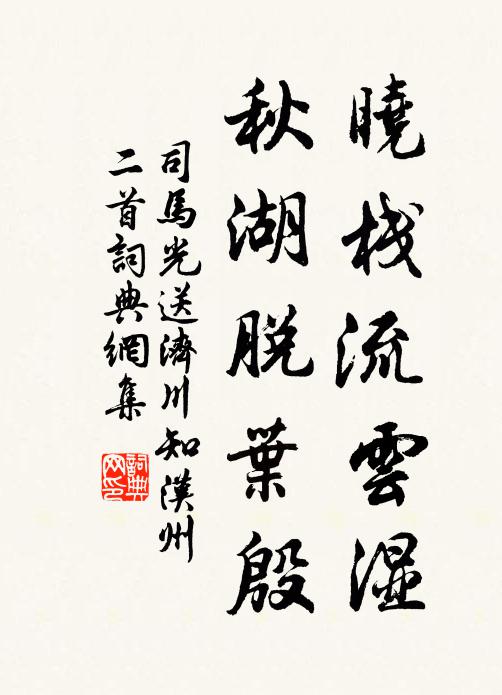 曉栈流雲湿
秋湖脱葉殷
司馬光送濟川知漢州
二首詞典網集
詞典
网印